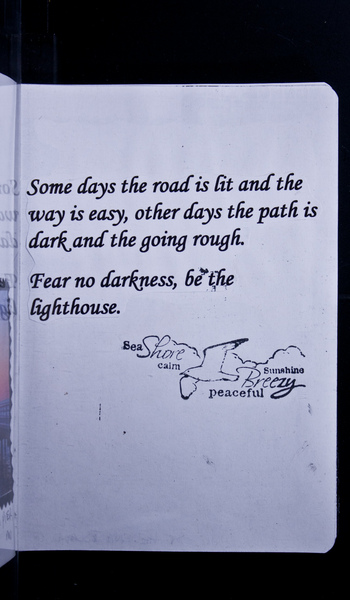 Some days the road is lit and the
way is easy, other days the path is
dark and the going rough.
Fear no darkness, be the
lighthouse.
Sea Shore
calm
Sunshine
Breezy
peaceful